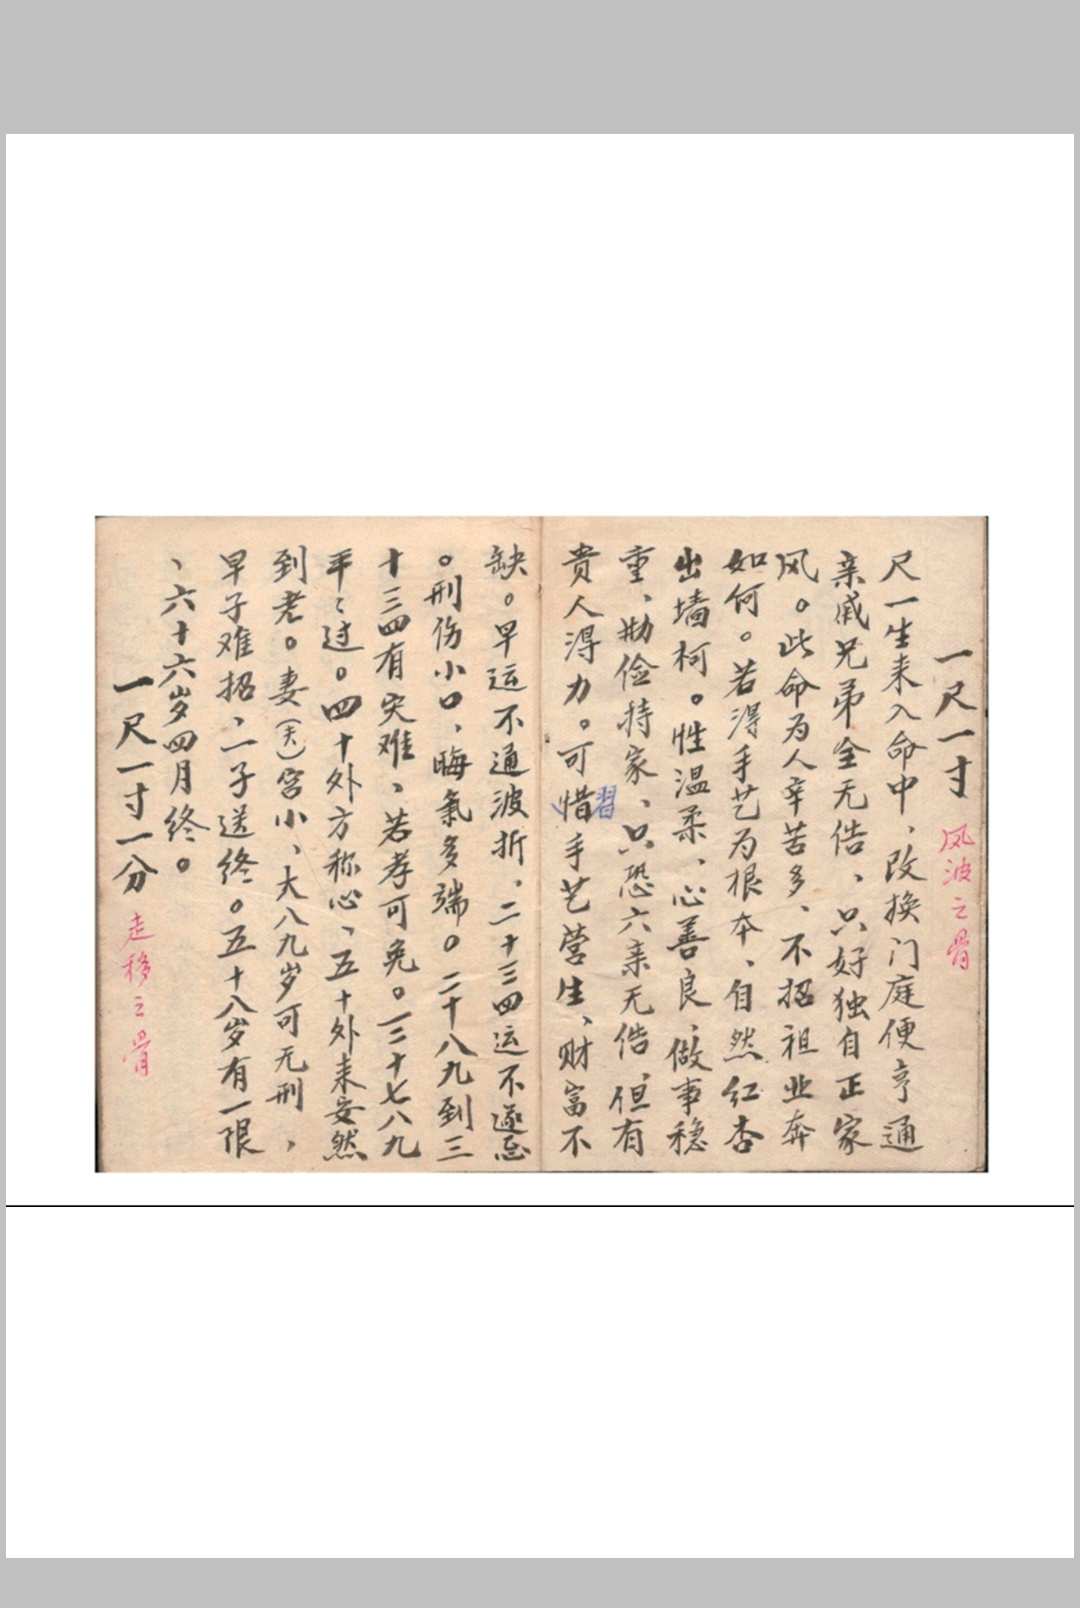 一尺一寸 风波之骨
尺一生来入命中、改换门庭便亨通
亲戚兄弟全无俈、只好独自正家
风。此命为人辛苦多、不招祖业奔
如何。若得手艺为根本、自然红杏
出墙柯。性温柔、心善良、做事稳
重、勤俭持家、只恐六亲无俈、但有
贵人得力。可惜習手艺营生、财富不
缺。早运不通波折、二十三四运不遂正
。刑伤小口、晦氣多端。二十八九到三
十三四有灾难、若孝可免。三十七八九
平々过。四十外方称心、五十外来安然
到老。妻(夫)宫小、大八九岁可无刑,
早子难招、一子送终。五十八岁有一限
、六十六岁四月终。
一尺一寸一分 走移之骨